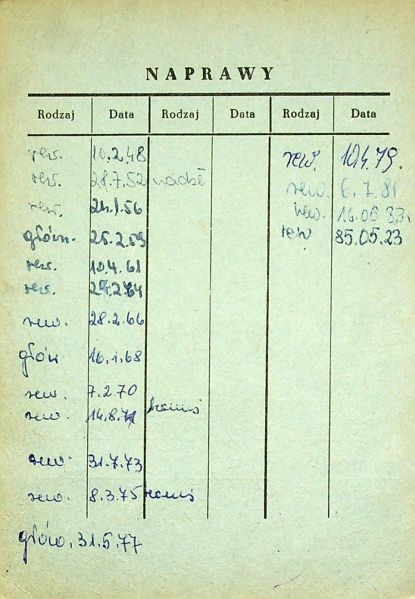 NAPRAWY
Rodzaj Data Rodzaj Data Rodzaj Data
rew. 10.2.48
rew. 28.7.52
rew. 24.1.56
główn. 25.2.59
rew. 10.4.61
rew.
rew. 28.2.66
głów 16.1.68
rew. 7.2.70
rew. 14.8.71
rew. 31.7.73
rew. 8.3.75
głów. 31.5.77
rew. 10.4.79.
rew. 6.7.81
rew.
rew 85.05.23